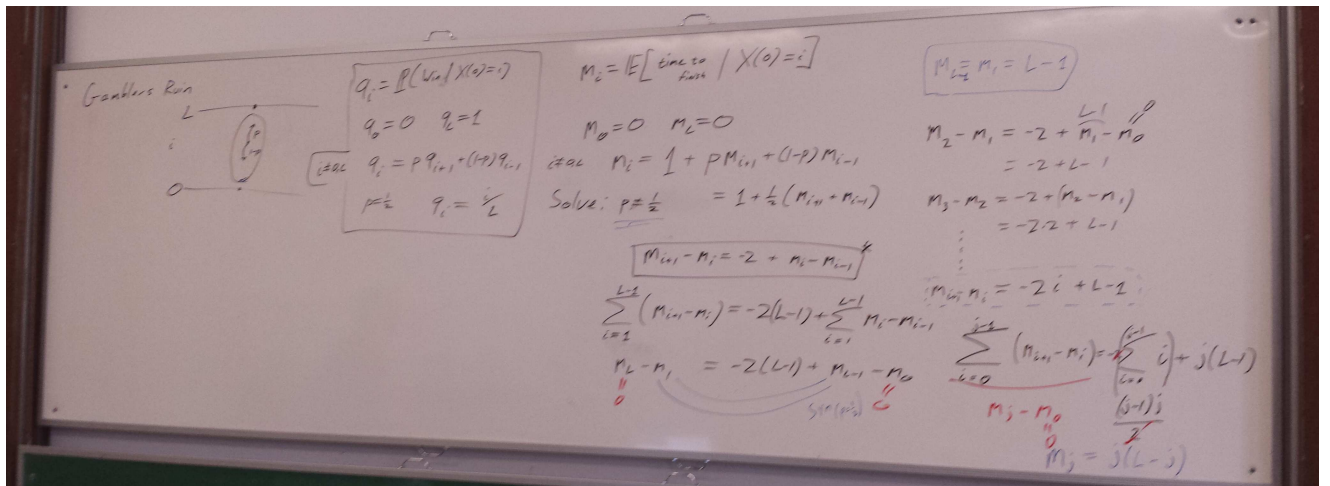 Gamblers Ruin
L
i
O
p
1-p
q_i = P(Win | X(0)=i)
q_0 = 0 q_L = 1
i≠0,L q_i = p q_{i+1} + (1-p) q_{i-1}
p=½ q_i = i/L
m_i = E[ time to finish | X(0)=i ]
m_0 = 0 m_L = 0
i≠0,L m_i = 1 + p m_{i+1} + (1-p) m_{i-1}
Solve: p=½ = 1 + ½(m_{i+1} + m_{i-1})
m_{i+1} - m_i = -2 + m_i - m_{i-1}
∑_{i=1}^{L-1} (m_{i+1} - m_i) = -2(L-1) + ∑_{i=1}^{L-1} m_i - m_{i-1}
m_L - m_1 = -2(L-1) + m_{L-1} - m_0
= 0 = 0
sym (p=½)
m_{L-1} = m_1 = L-1
L-1 0
m_2 - m_1 = -2 + m_1 - m_0
= -2 + L-1
m_3 - m_2 = -2 + (m_2 - m_1)
= -2·2 + L-1
m_{i+1} - m_i = -2i + L-1
∑_{i=0}^{j-1} (m_{i+1} - m_i) = -2(∑_{i=0}^{j-1} i) + j(L-1)
m_j - m_0 (j-1)j/2
= 0
m_j = j(L-j)